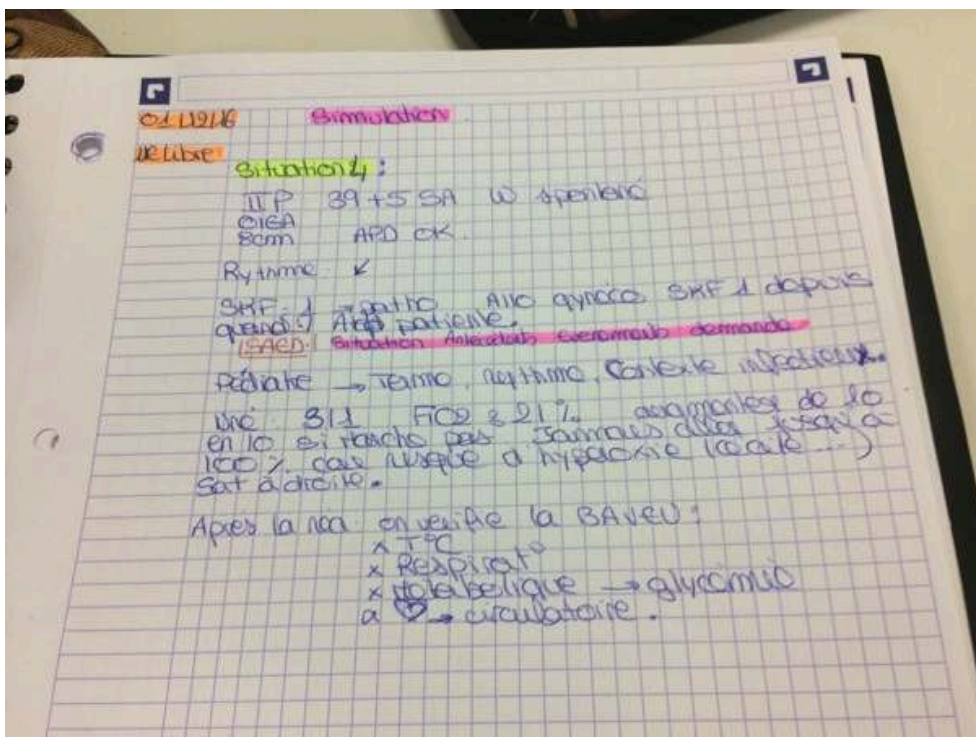 01/12/16 Simmulation
UE Libre
Situation 4 :
II P 39+5 SA W spontané
OIGA
8cm APD OK.
Rythme ↙
SMF : 1 → patho Allo gynéco SMF 1 depuis
quand ? patiente.
SAED: Situation Antécédents Evenements demande
Pédiatre → Terme, rythme, Contexte infectieux.
Réa 3/1 FiO2 à 21% augmenter de 10
en 10 si marche pas jusqu'à
100% car risque d'hyperoxie
Sat à droite.
Apres la réa on verifie la
x T°C
x Respirat°
x Métabolique → glycémie
♡ → circulatoire.